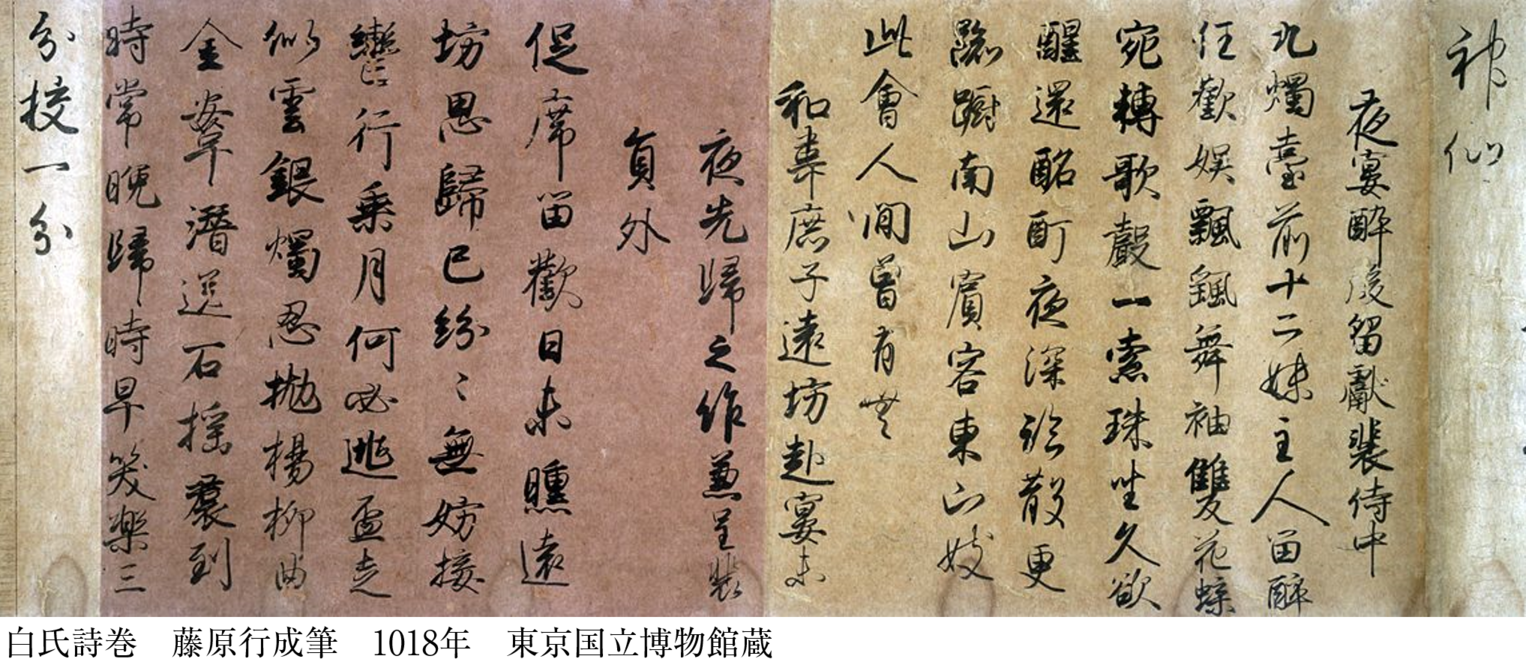 神仙
夜宴醉後留獻裴侍中
九燭臺前十二姝主人留醉
任歡娯飄颻舞袖雙花蝶
宛轉歌聲一索珠坐久欲
醒還酩酊夜深臨散更
踟蹰南山賓客東山妓
此會人間曾有無
和韋庶子遠坊赴宴未
夜先歸之作兼呈裴
員外
促席留歡日未曛遠
坊思歸已紛々無妨按
轡行乗月何必逃盃走
似雲銀燭忍抛楊柳曲
金鞍潛送石榴裙到
時常晩歸時早笑樂三
分挍一分
白氏詩巻　藤原行成筆　1018年　東京国立博物館蔵